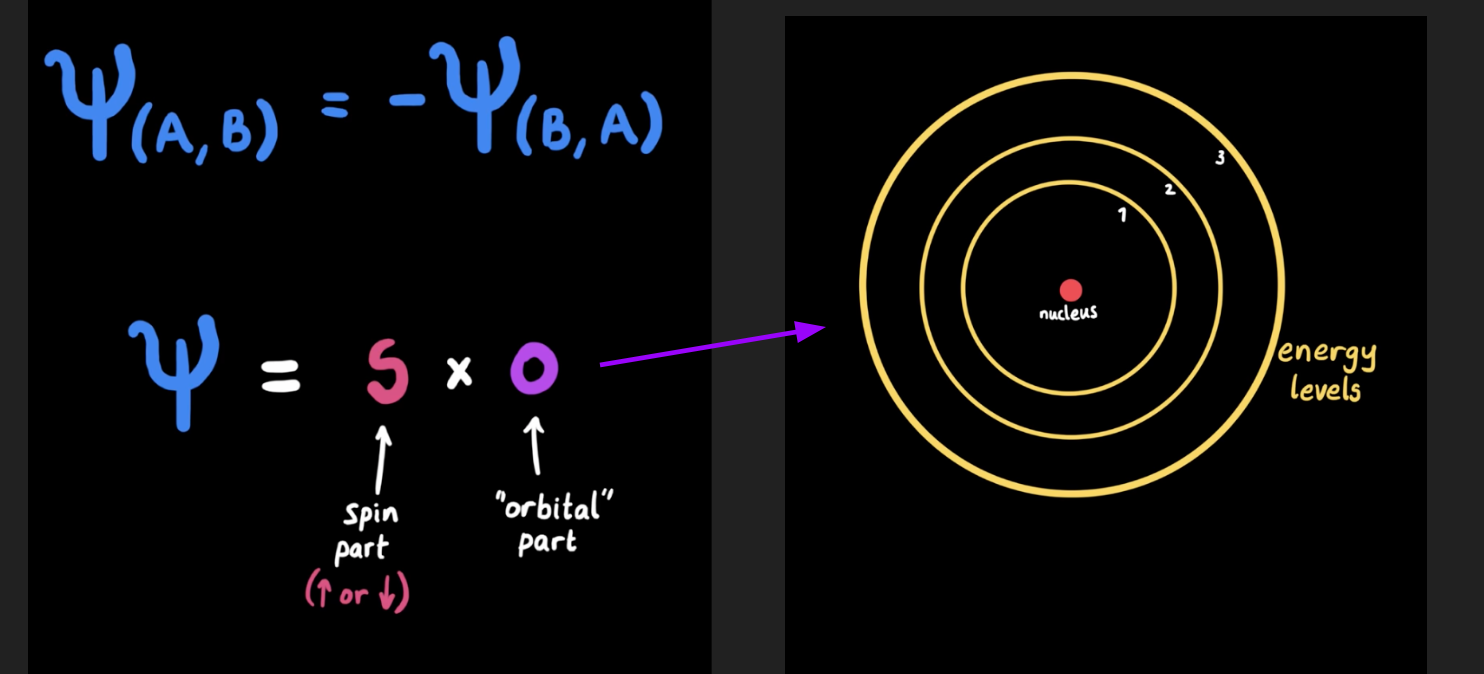 Ψ(A, B) = -Ψ(B, A)
Ψ = S x O
spin
part
(↑ or ↓)
"orbital"
part
3
2
1
nucleus
energy
levels